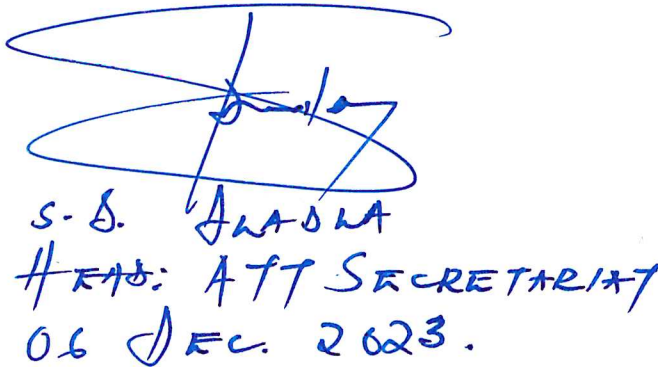 S. D. DLADLA
HEAD: ATT SECRETARIAT
06 DEC. 2023.